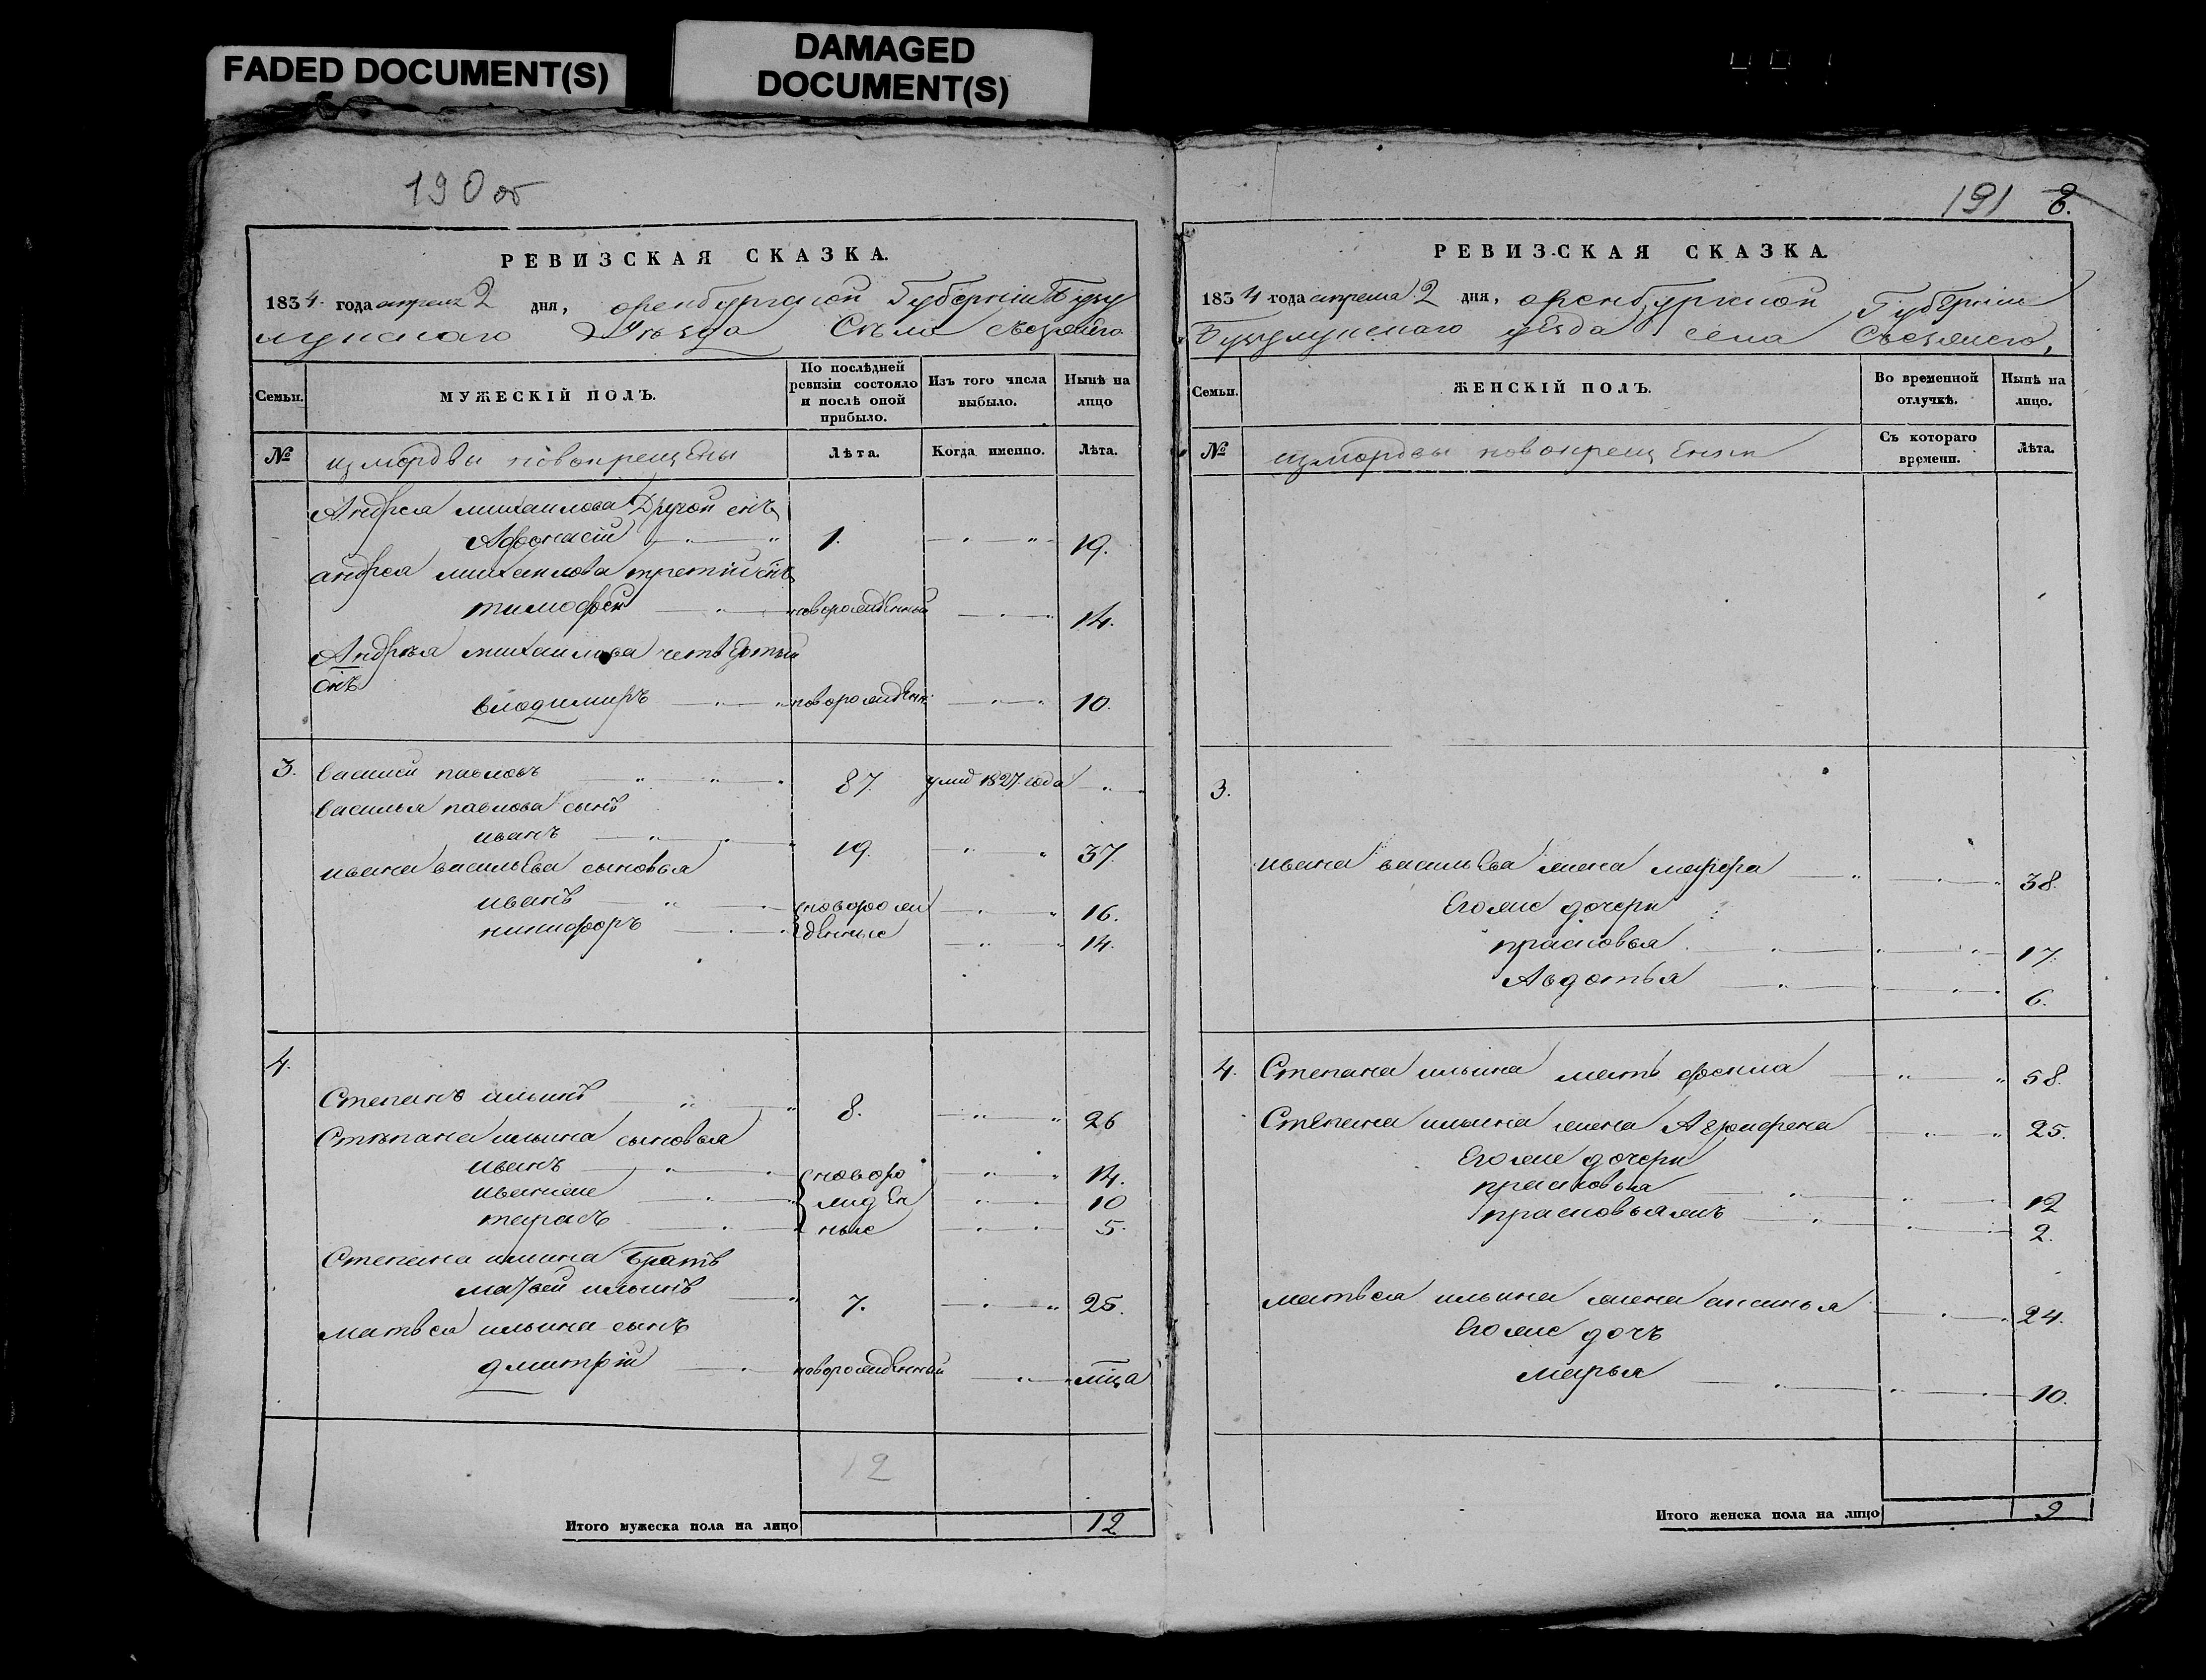 FADED DOCUMENT(S)
DAMAGED
DOCUMENT(S)
190 об
РЕВИЗСКАЯ СКАЗКА.
1834. года апреля 2 дня, оренбургской Губернiи Бузу
лунскаго Уѣзда Села съезжего
Семьи.
МУЖЕСКIЙ ПОЛЪ.
По послѣдней ревизiи состояло и послѣ оной прибыло.
Изъ того числа выбыло.
Нынѣ на лицо
№ из мордвы новокрещены Лѣта. Когда именно. Лѣта.
Андрея михаилова Другой снъ
Афонасiй 1. 19.
андрея михаилова третiй снъ
тимофей новорожденный 14.
Андрѣя михаилова четвертый
снъ
владимиръ новорожден: 10.
3. василий павловъ 87. умер 1827. года
василья павлова сынъ
иванъ 19. 37.
ивана васильева сыновья
иванъ новорож 16.
никифоръ денные 14.
4.
Степанъ ильинъ 8. 26
Стѣпана ильина сыновья
иванъ новоро 14.
иванже жден 10
тарасъ ные 5.
Степана ильина Братъ
матвей ильинъ 7. 25.
матвея ильина сынъ
дмитрiй новорожденный мца
12
Итого мужеска пола на лицо 12
191 8.
РЕВИЗСКАЯ СКАЗКА.
1834 года апреля 2 дня, оренбургской Губернiи
Бузулунскаго уезда села Съезжего,
Семьи.
ЖЕНСКIЙ ПОЛЪ.
Во временной отлучкѣ.
Нынѣ на лицо.
№ из мордвы новокрещенки Съ котораго времени. Лѣта.
3.
ивана васильева жена марфа 38.
Егоже дочери
прасковья 17.
Авдотья 6.
4. Степана ильина мать фекла 58.
Степана ильина жена Агрофена 25.
Егоже дочери
прасковья 12
прасковьяжъ 2.
матвея ильина жена аксинья 24.
Егоже дочъ
марья 10.
Итого женска пола на лицо 9